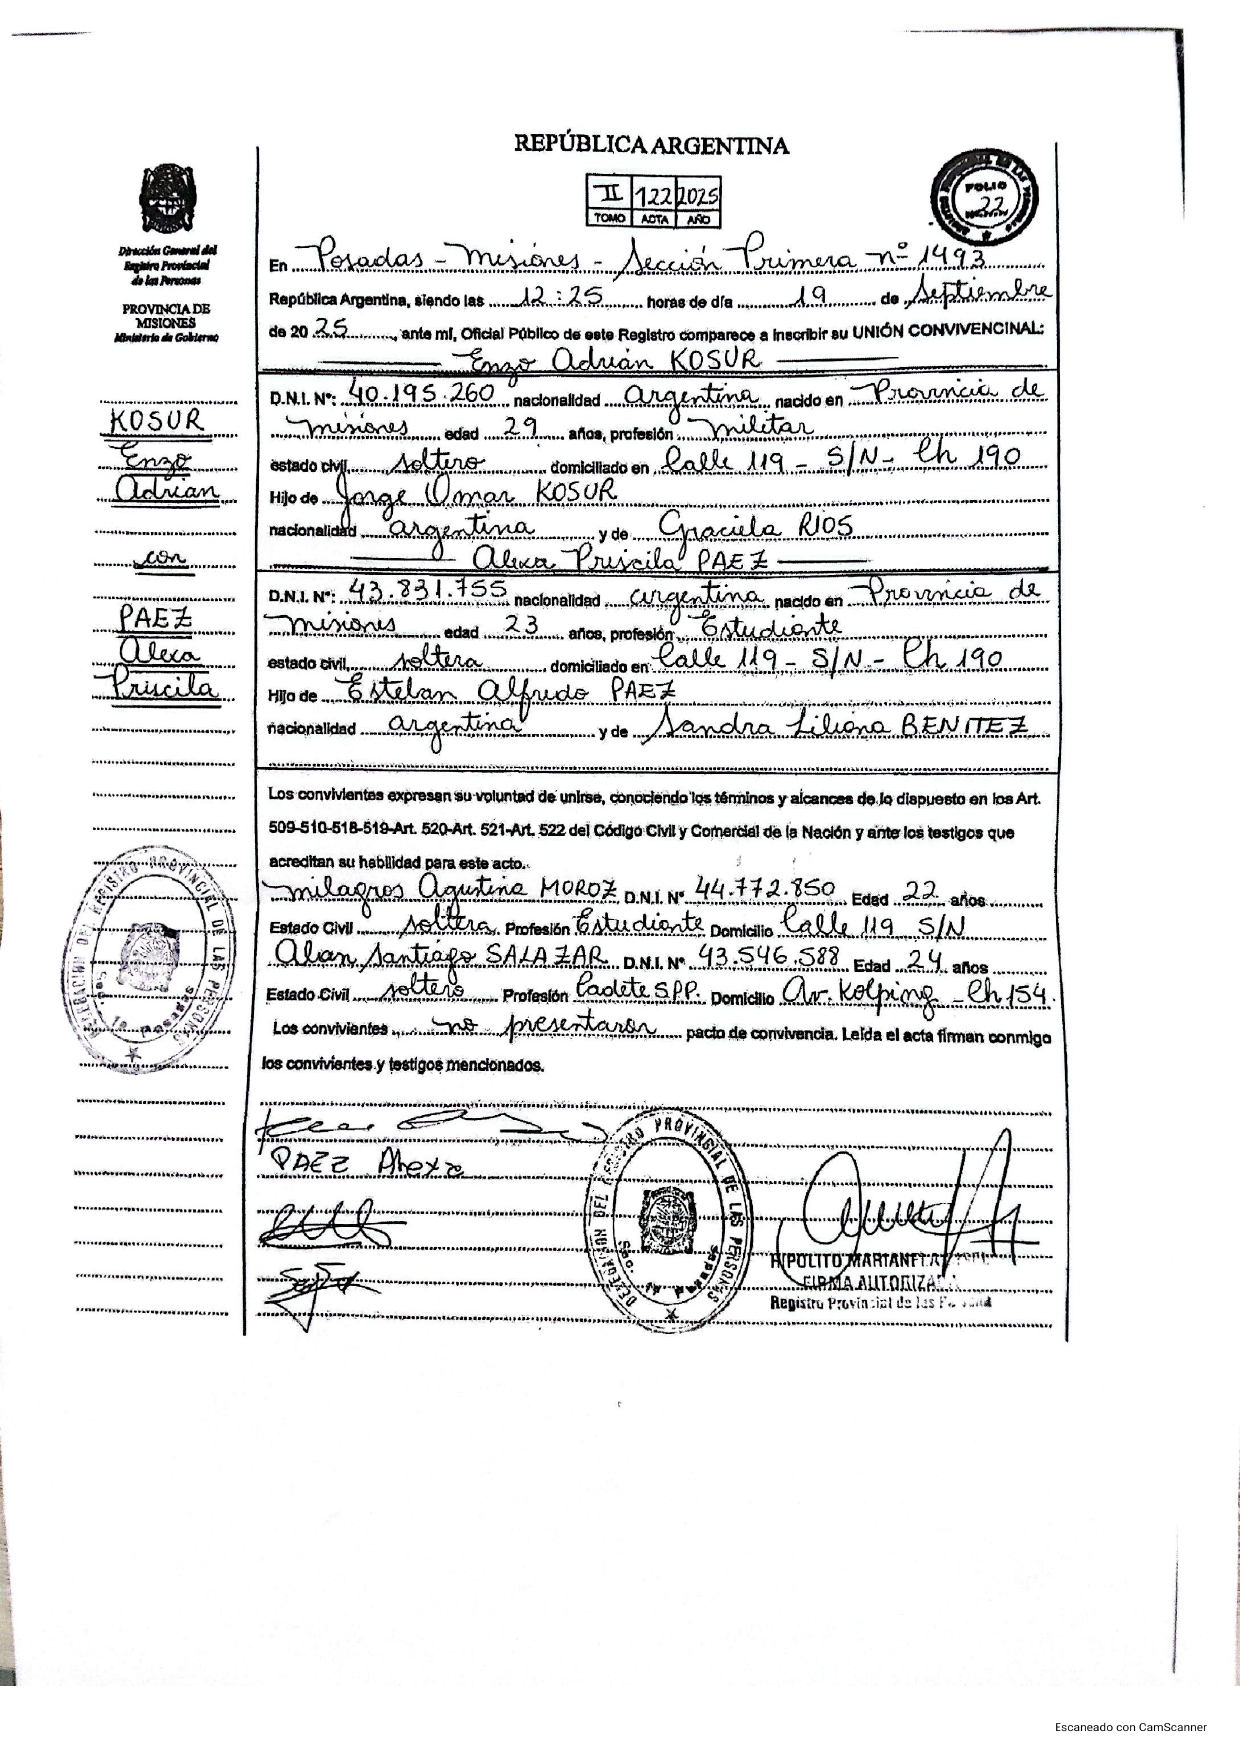 REPÚBLICA ARGENTINA
II 122 2025
TOMO ACTA AÑO
FOLIO
22
Dirección General del
Registro Provincial
de las Personas
PROVINCIA DE
MISIONES
Ministerio de Gobierno
En Posadas - Misiones - Sección Primera nº 1493
República Argentina, siendo las 12:25 horas de día 19 de Septiembre
de 20 25, ante mí, Oficial Público de este Registro comparece a inscribir su UNIÓN CONVIVENCINAL:
Enzo Adrián KOSUR
D.N.I. Nº: 40.195.260 nacionalidad argentina nacido en Provincia de
Misiones edad 29 años, profesión militar
estado civil soltero domiciliado en Calle 119 - S/N - Ch 190
Hijo de Jorge Omar KOSUR
nacionalidad argentina y de Graciela RIOS
Alexa Priscila PAEZ
D.N.I. Nº: 43.831.755 nacionalidad argentina nacido en Provincia de
Misiones edad 23 años, profesión Estudiante
estado civil soltera domiciliado en Calle 119 - S/N - Ch 190
Hijo de Esteban Alfredo PAEZ
nacionalidad argentina y de Sandra Liliana BENITEZ
KOSUR
Enzo
Adrian
con
PAEZ
Alexa
Priscila
Los convivientes expresan su voluntad de unirse, conociendo los términos y alcances de lo dispuesto en los Art.
509-510-518-519-Art. 520-Art. 521-Art. 522 del Código Civil y Comercial de la Nación y ante los testigos que
acreditan su habilidad para este acto.
Milagros Agustina MOROZ D.N.I. Nº 44.772.850 Edad 22 años
Estado Civil soltera Profesión Estudiante Domicilio Calle 119 S/N
Alan Santiago SALAZAR D.N.I. Nº 43.546.588 Edad 24 años
Estado Civil soltero Profesión Cadete SPP. Domicilio Av. Kolping - Ch 154.
Los convivientes no presentaron pacto de convivencia. Leída el acta firman conmigo
los convivientes y testigos mencionados.
DELEGACION DEL REGISTRO PROVINCIAL DE LAS PERSONAS
PAEZ Alexa
DELEGACION DEL REGISTRO PROVINCIAL DE LAS PERSONAS
HIPOLITO
FIRMA AUTORIZADA
Registro Provincial de las
Escaneado con CamScanner